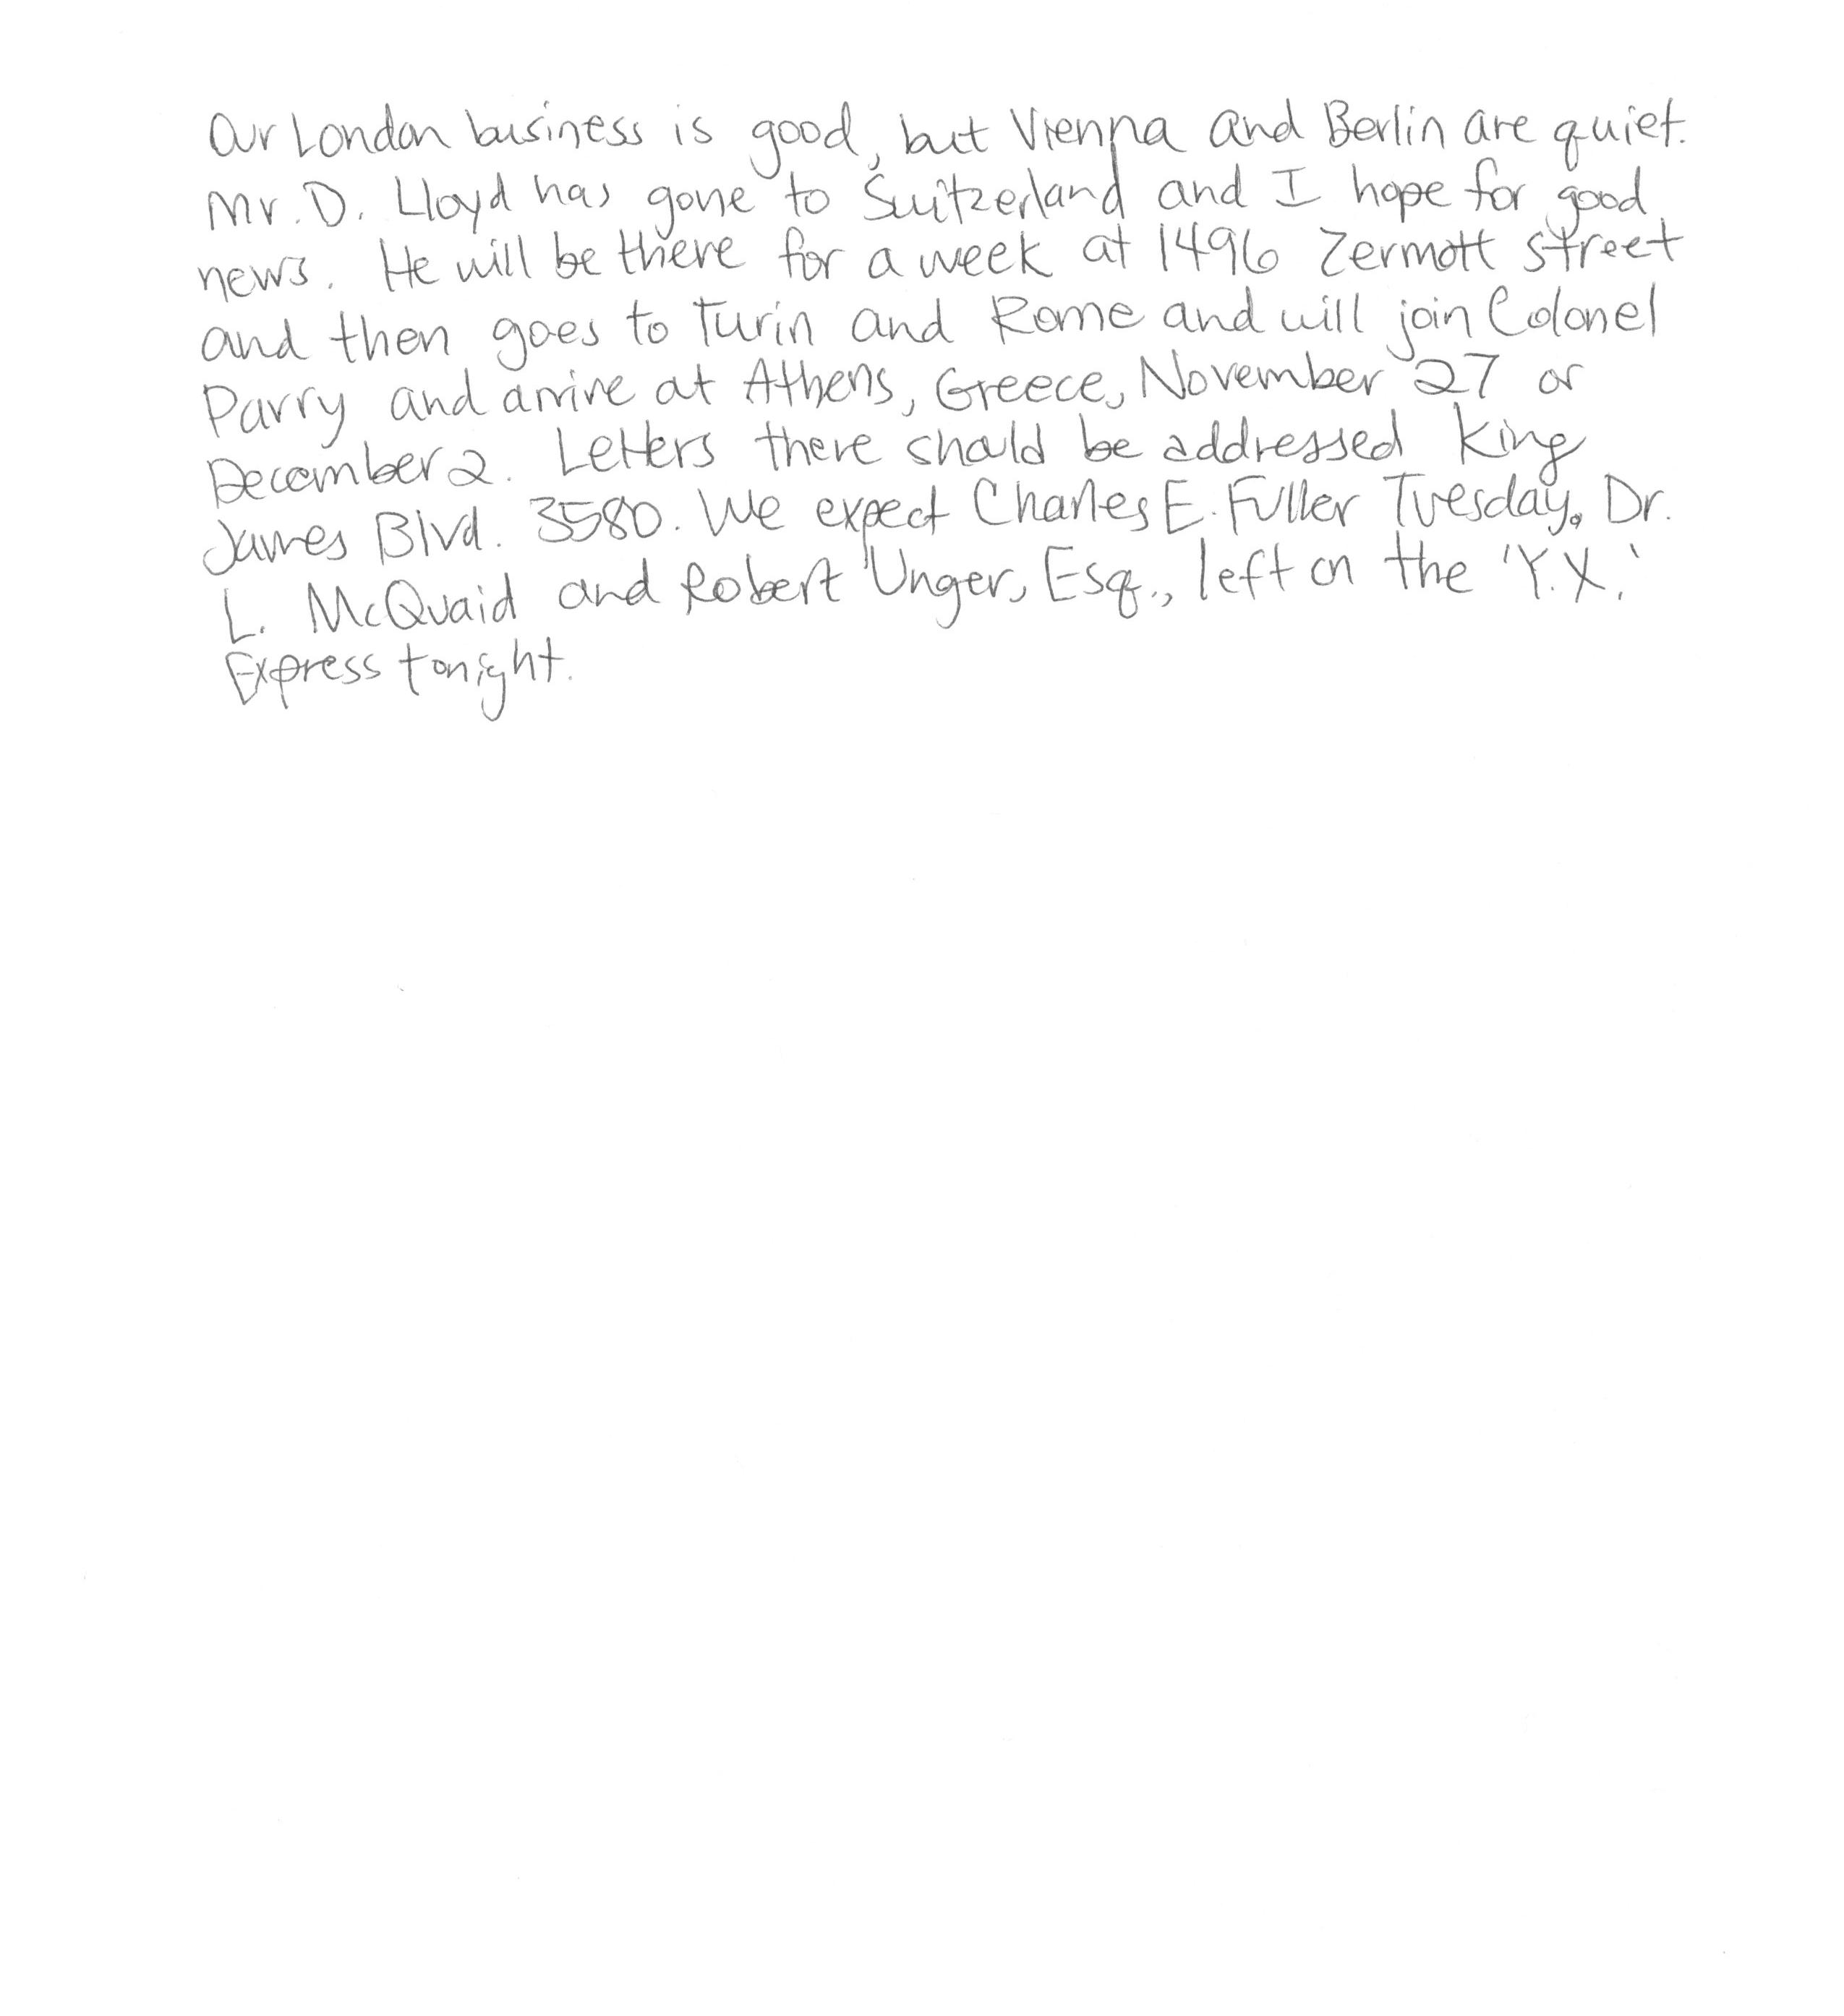 Our London business is good, but Vienna and Berlin are quiet.
Mr. D. Lloyd has gone to Switzerland and I hope for good
news. He will be there for a week at 1496 Zermott street
and then goes to Turin and Rome and will join Colonel
Parry and arrive at Athens, Greece, November 27 or
December 2. Letters there should be addressed King
James Blvd. 3580. We expect Charles E. Fuller Tuesday. Dr.
L. McQuaid and Robert Unger, Esq., left on the 'Y.X.'
Express tonight.